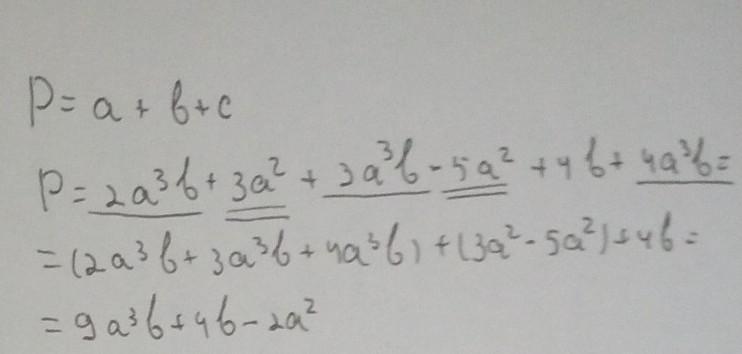 P = a + b + c
P = 2a³b + 3a² + 3a³b - 5a² + 4b + 4a³b =
= (2a³b + 3a³b + 4a³b) + (3a² - 5a²) + 4b =
= 9a³b + 4b - 2a²